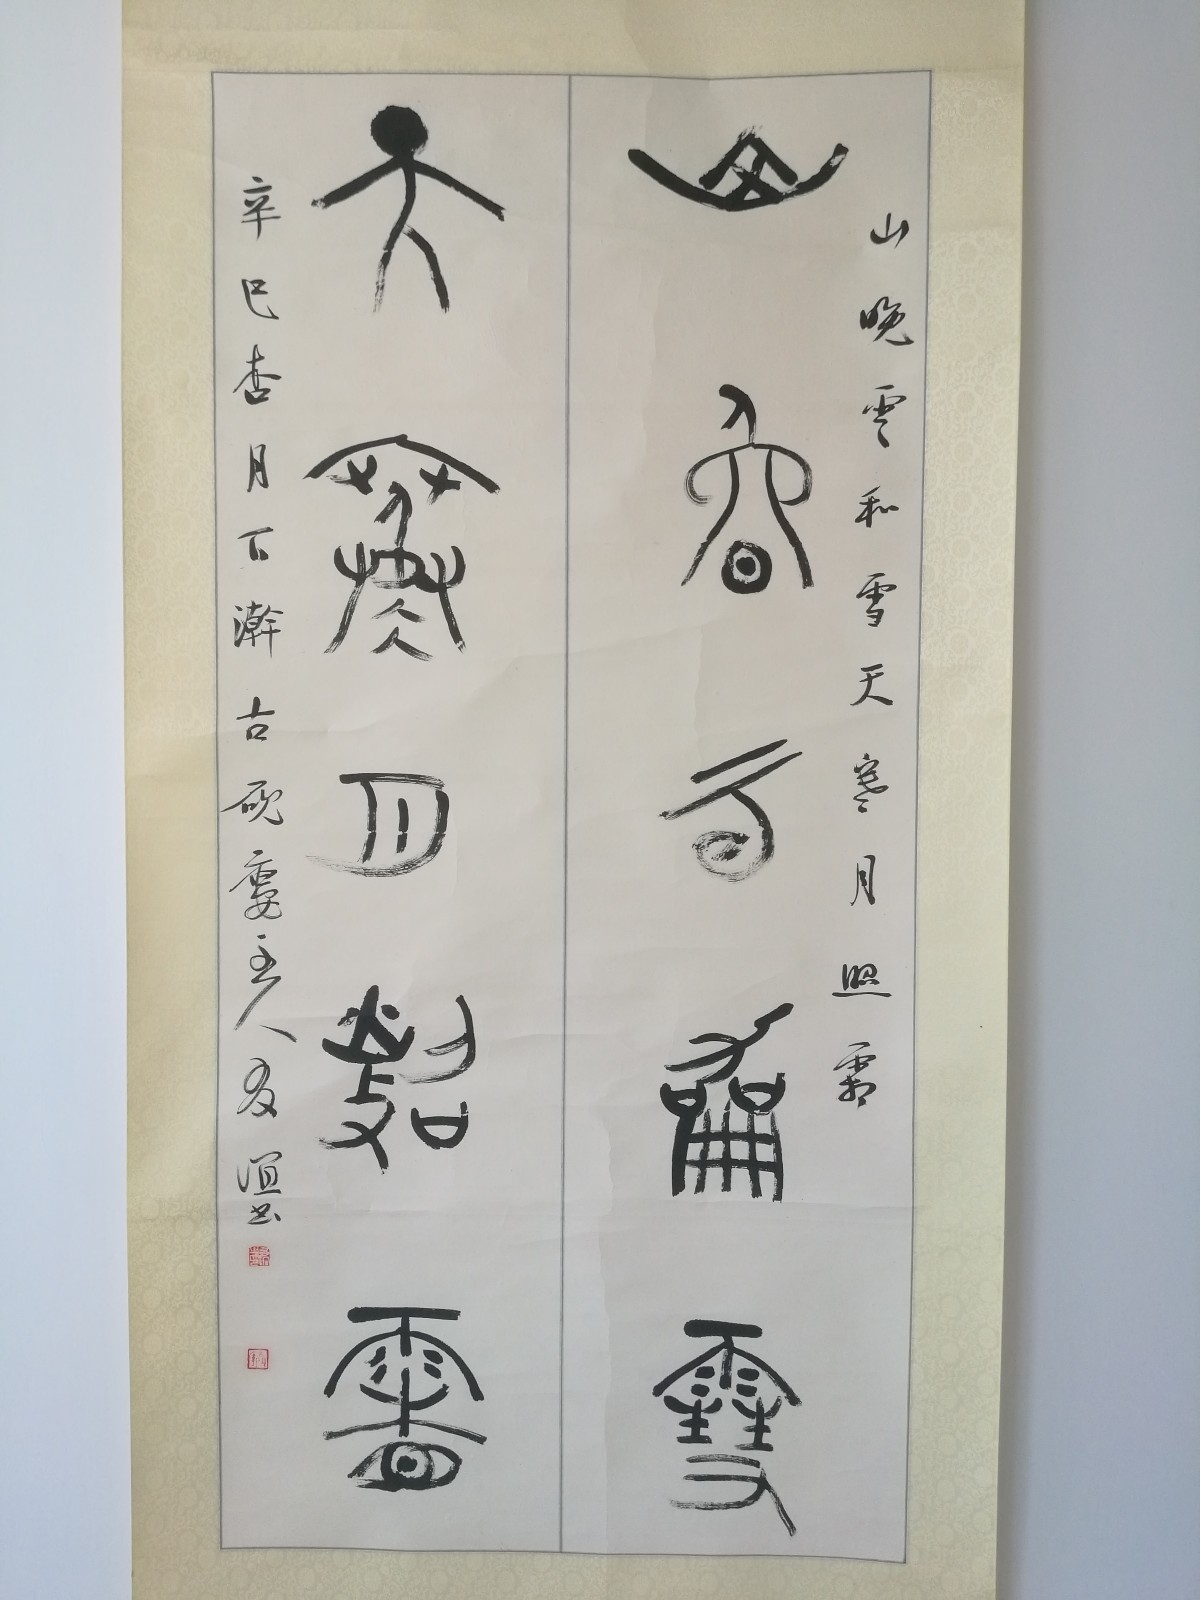 山晚雲和雪天寒月照霜
山晚雲和雪
天寒月照霜
辛巳杏月下澣古硯齋主人友誼書